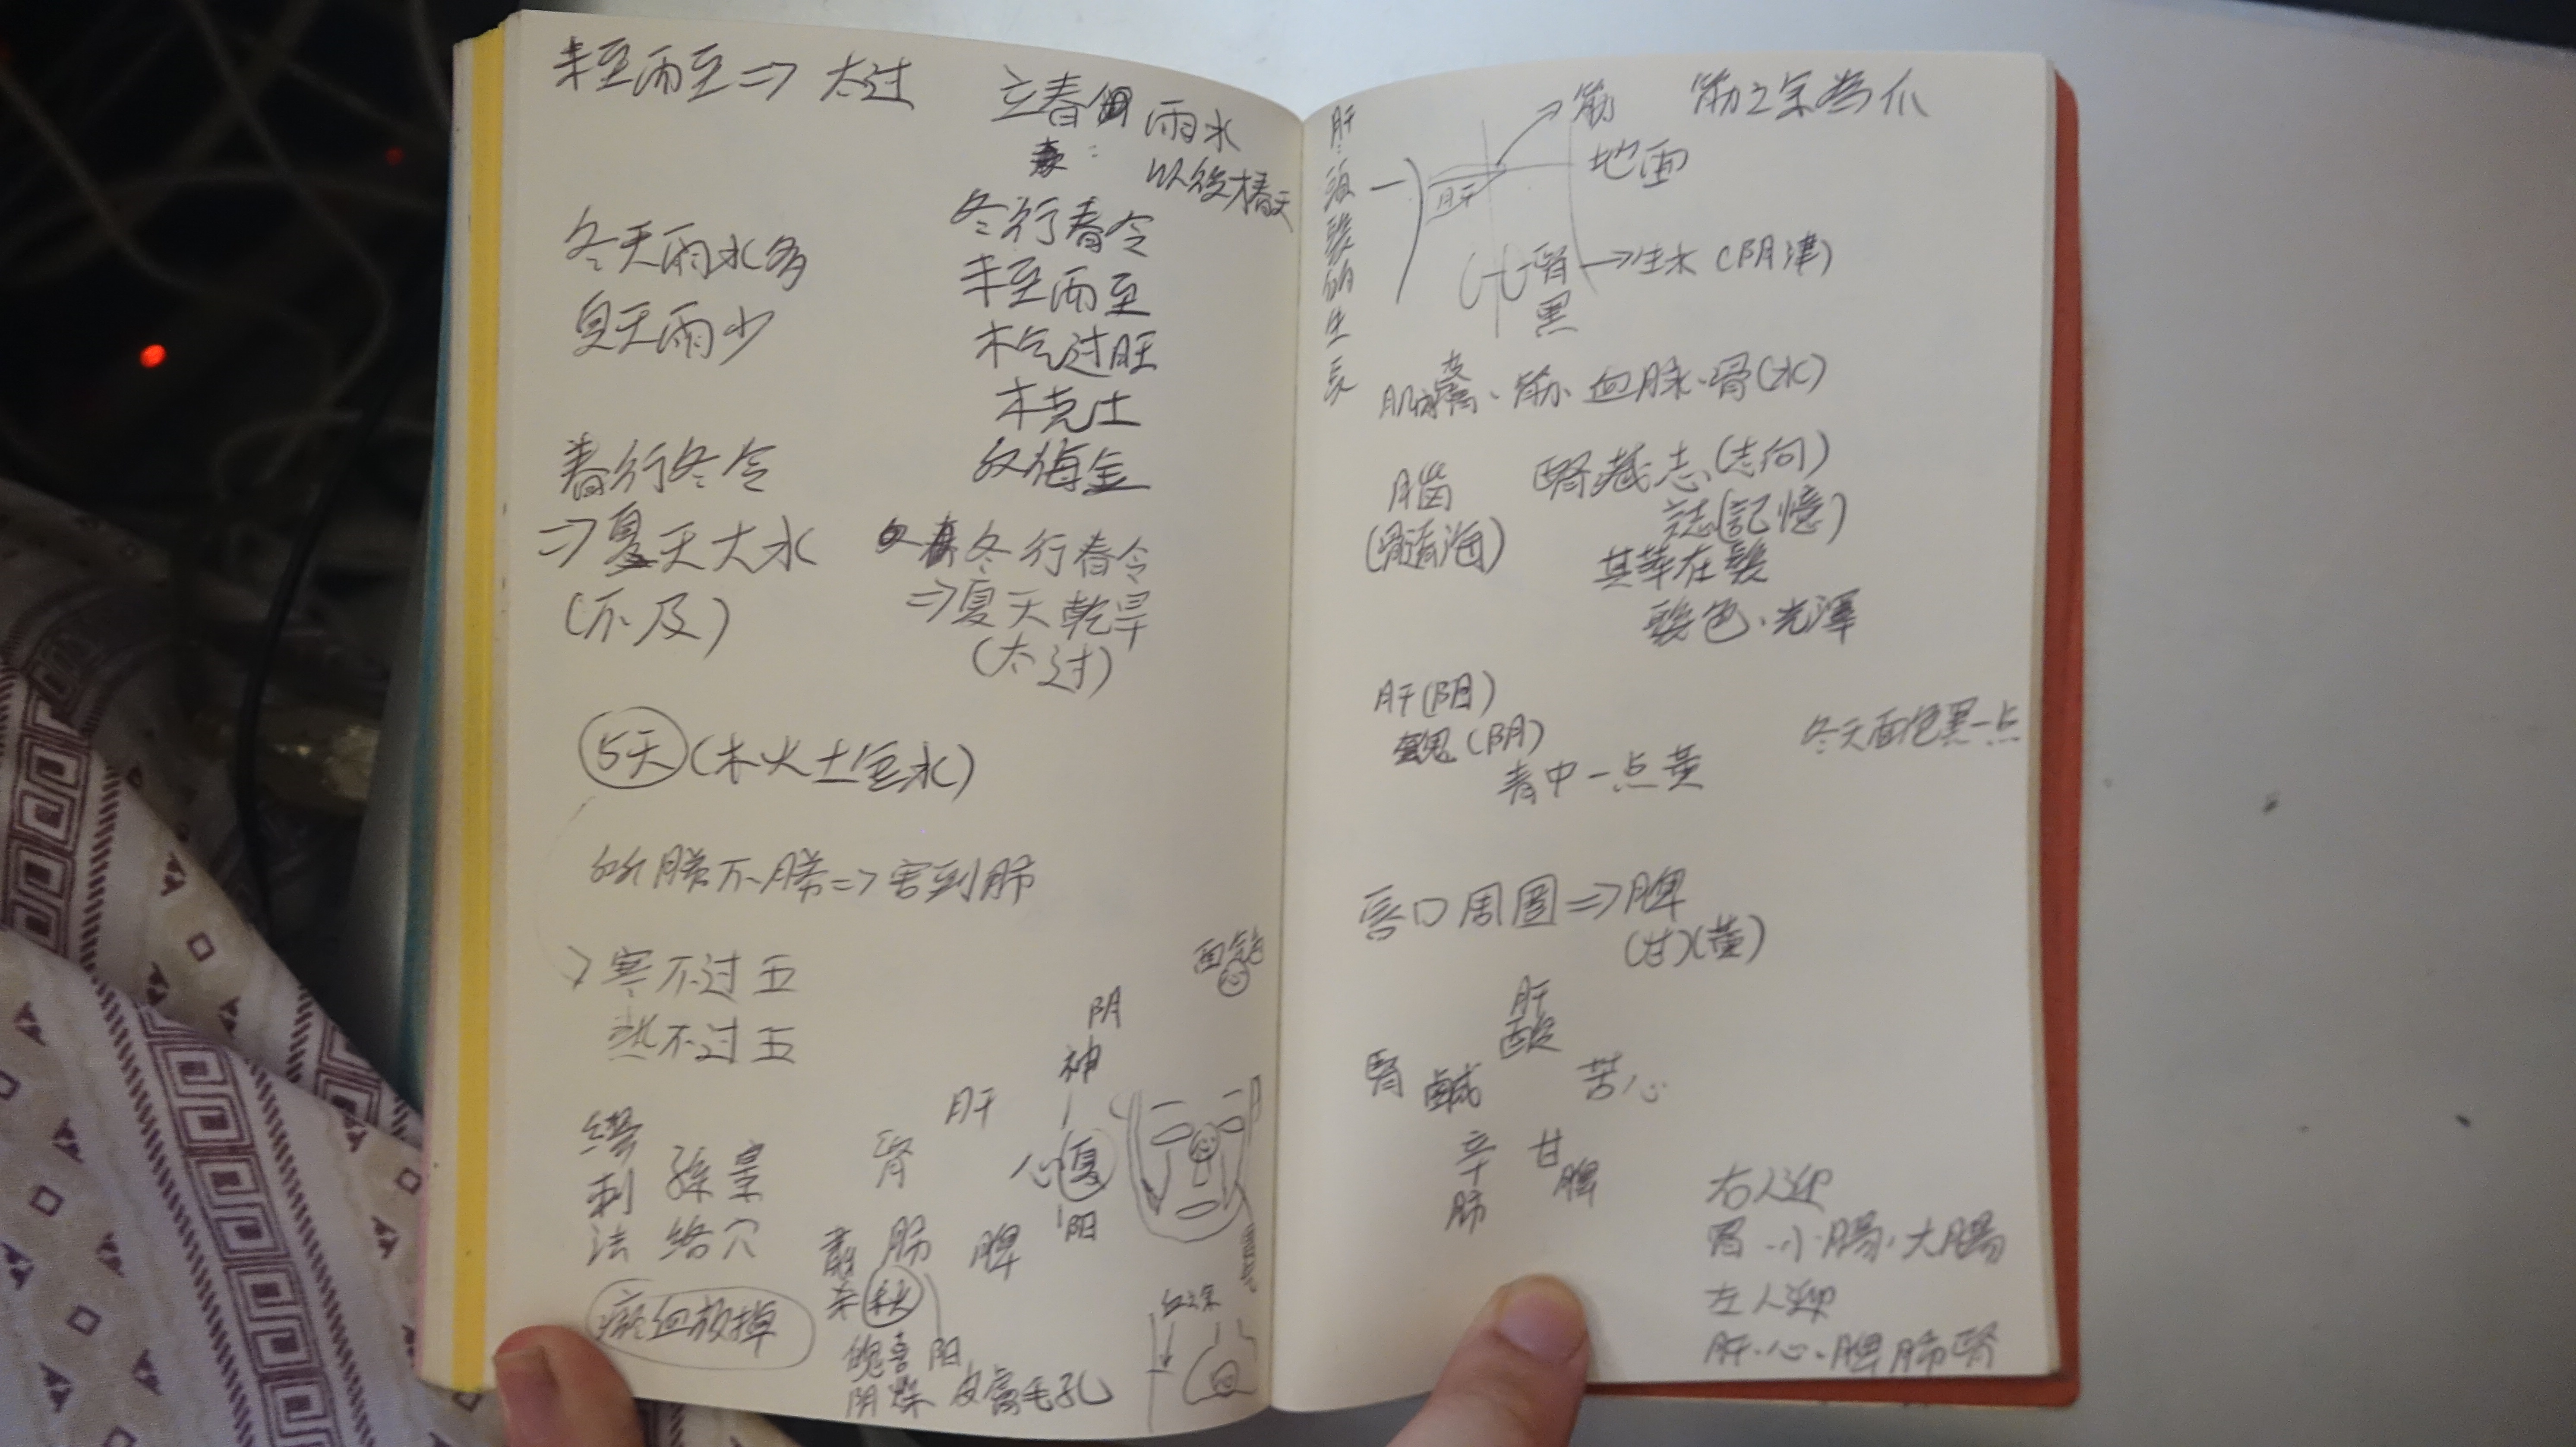 未至而至⇒太过
立春 雨水
以後才春天
冬天雨水多
夏天雨少
冬行春令
未至而至
木气过旺
木克土
反侮金
春行冬令
⇒夏天大水
(不及)
冬行春令
⇒夏天乾旱
(太过)
5天(木火土金水)
所勝不勝⇒害到肺
寒不过五
热不过五
繆刺法
孫絡
皇穴
瘀血放掉
面色
心
阴
神
肝
腎
心夏
阳
肺
脾
秋
魄喜
阳
阴燥
皮膚毛孔
肝
筋
筋之余為爪
地面
肝
腎→生木(阴津)
黑
肌、皮膚、筋、血脉、骨(水)
腦
(骨髓海)
腎藏志(志向)
誌(記憶)
其華在髮
髮色、光澤
肝(阳)
魂(阴)
青中一点黄
冬天面色黑一点
唇口周圍⇒脾
(甘)(黄)
肝
酸
腎 鹹
苦心
辛
肺
甘
脾
右人迎
胃、小腸、大腸
左人迎
肝、心、脾肺腎